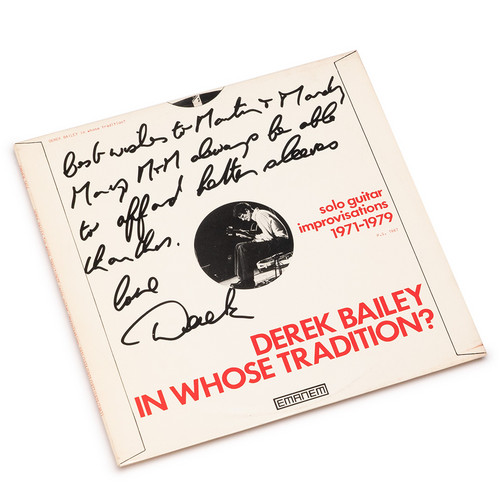 DEREK BAILEY in whose tradition?
best wishes to Martin & Mandy
May M+M always be able
to afford better sleeves
than this.
love
Derek
solo guitar
improvisations
1971–1979
DEREK BAILEY
IN WHOSE TRADITION?
EMANEM